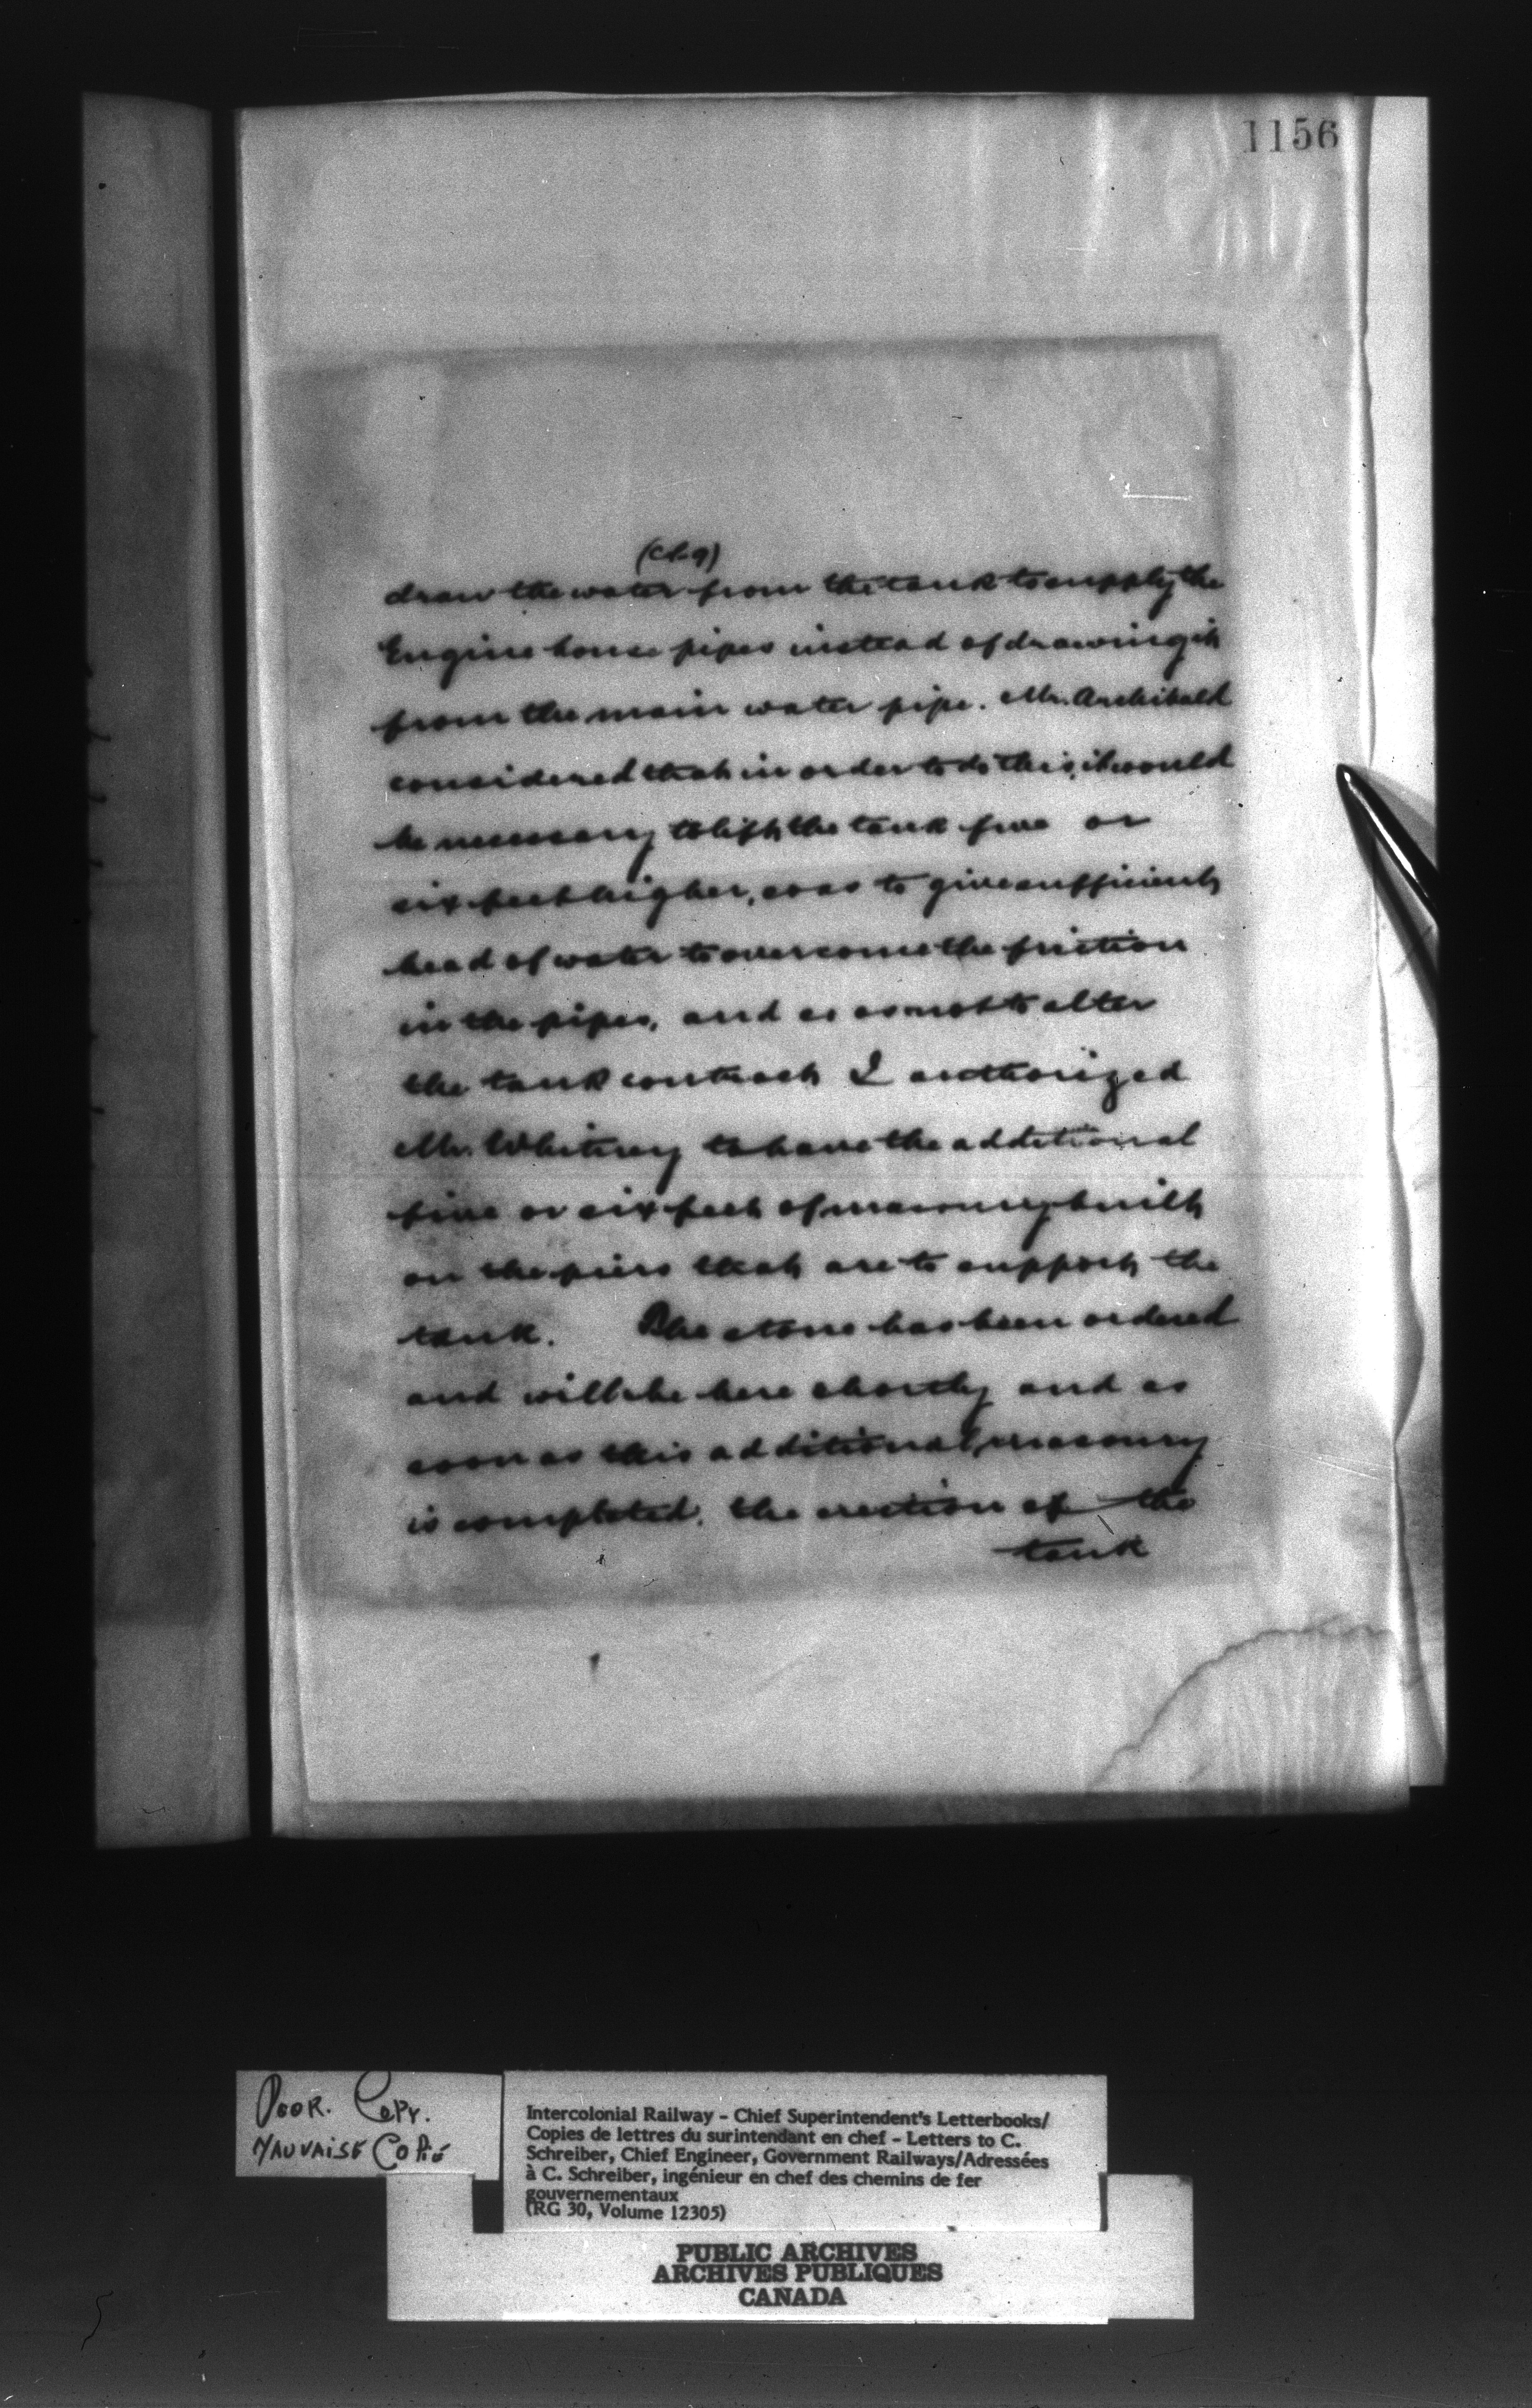 1156
draw the water from the tank to supply the
Engine house pipes instead of drawing it
from the main water pipe. Mr. Archibald
considered that in order to do this, it would
be necessary to lift the tank five or
six feet higher, so as to give sufficient
head of water to overcome the friction
in the pipes, and so as not to alter
the tank contract I authorized
Mr. Whitney to have the additional
five or six feet of masonry built
on the piers that are to support the
tank. The stone has been ordered
and will be here shortly and as
soon as this additional masonry
is completed, the erection of the
tank
POOR. COPY.
MAUVAISE COPIE
Intercolonial Railway - Chief Superintendent's Letterbooks/
Copies de lettres du surintendant en chef - Letters to C.
Schreiber, Chief Engineer, Government Railways/Adressées
à C. Schreiber, ingénieur en chef des chemins de fer
gouvernementaux
(RG 30, Volume 12305)
PUBLIC ARCHIVES
ARCHIVES PUBLIQUES
CANADA